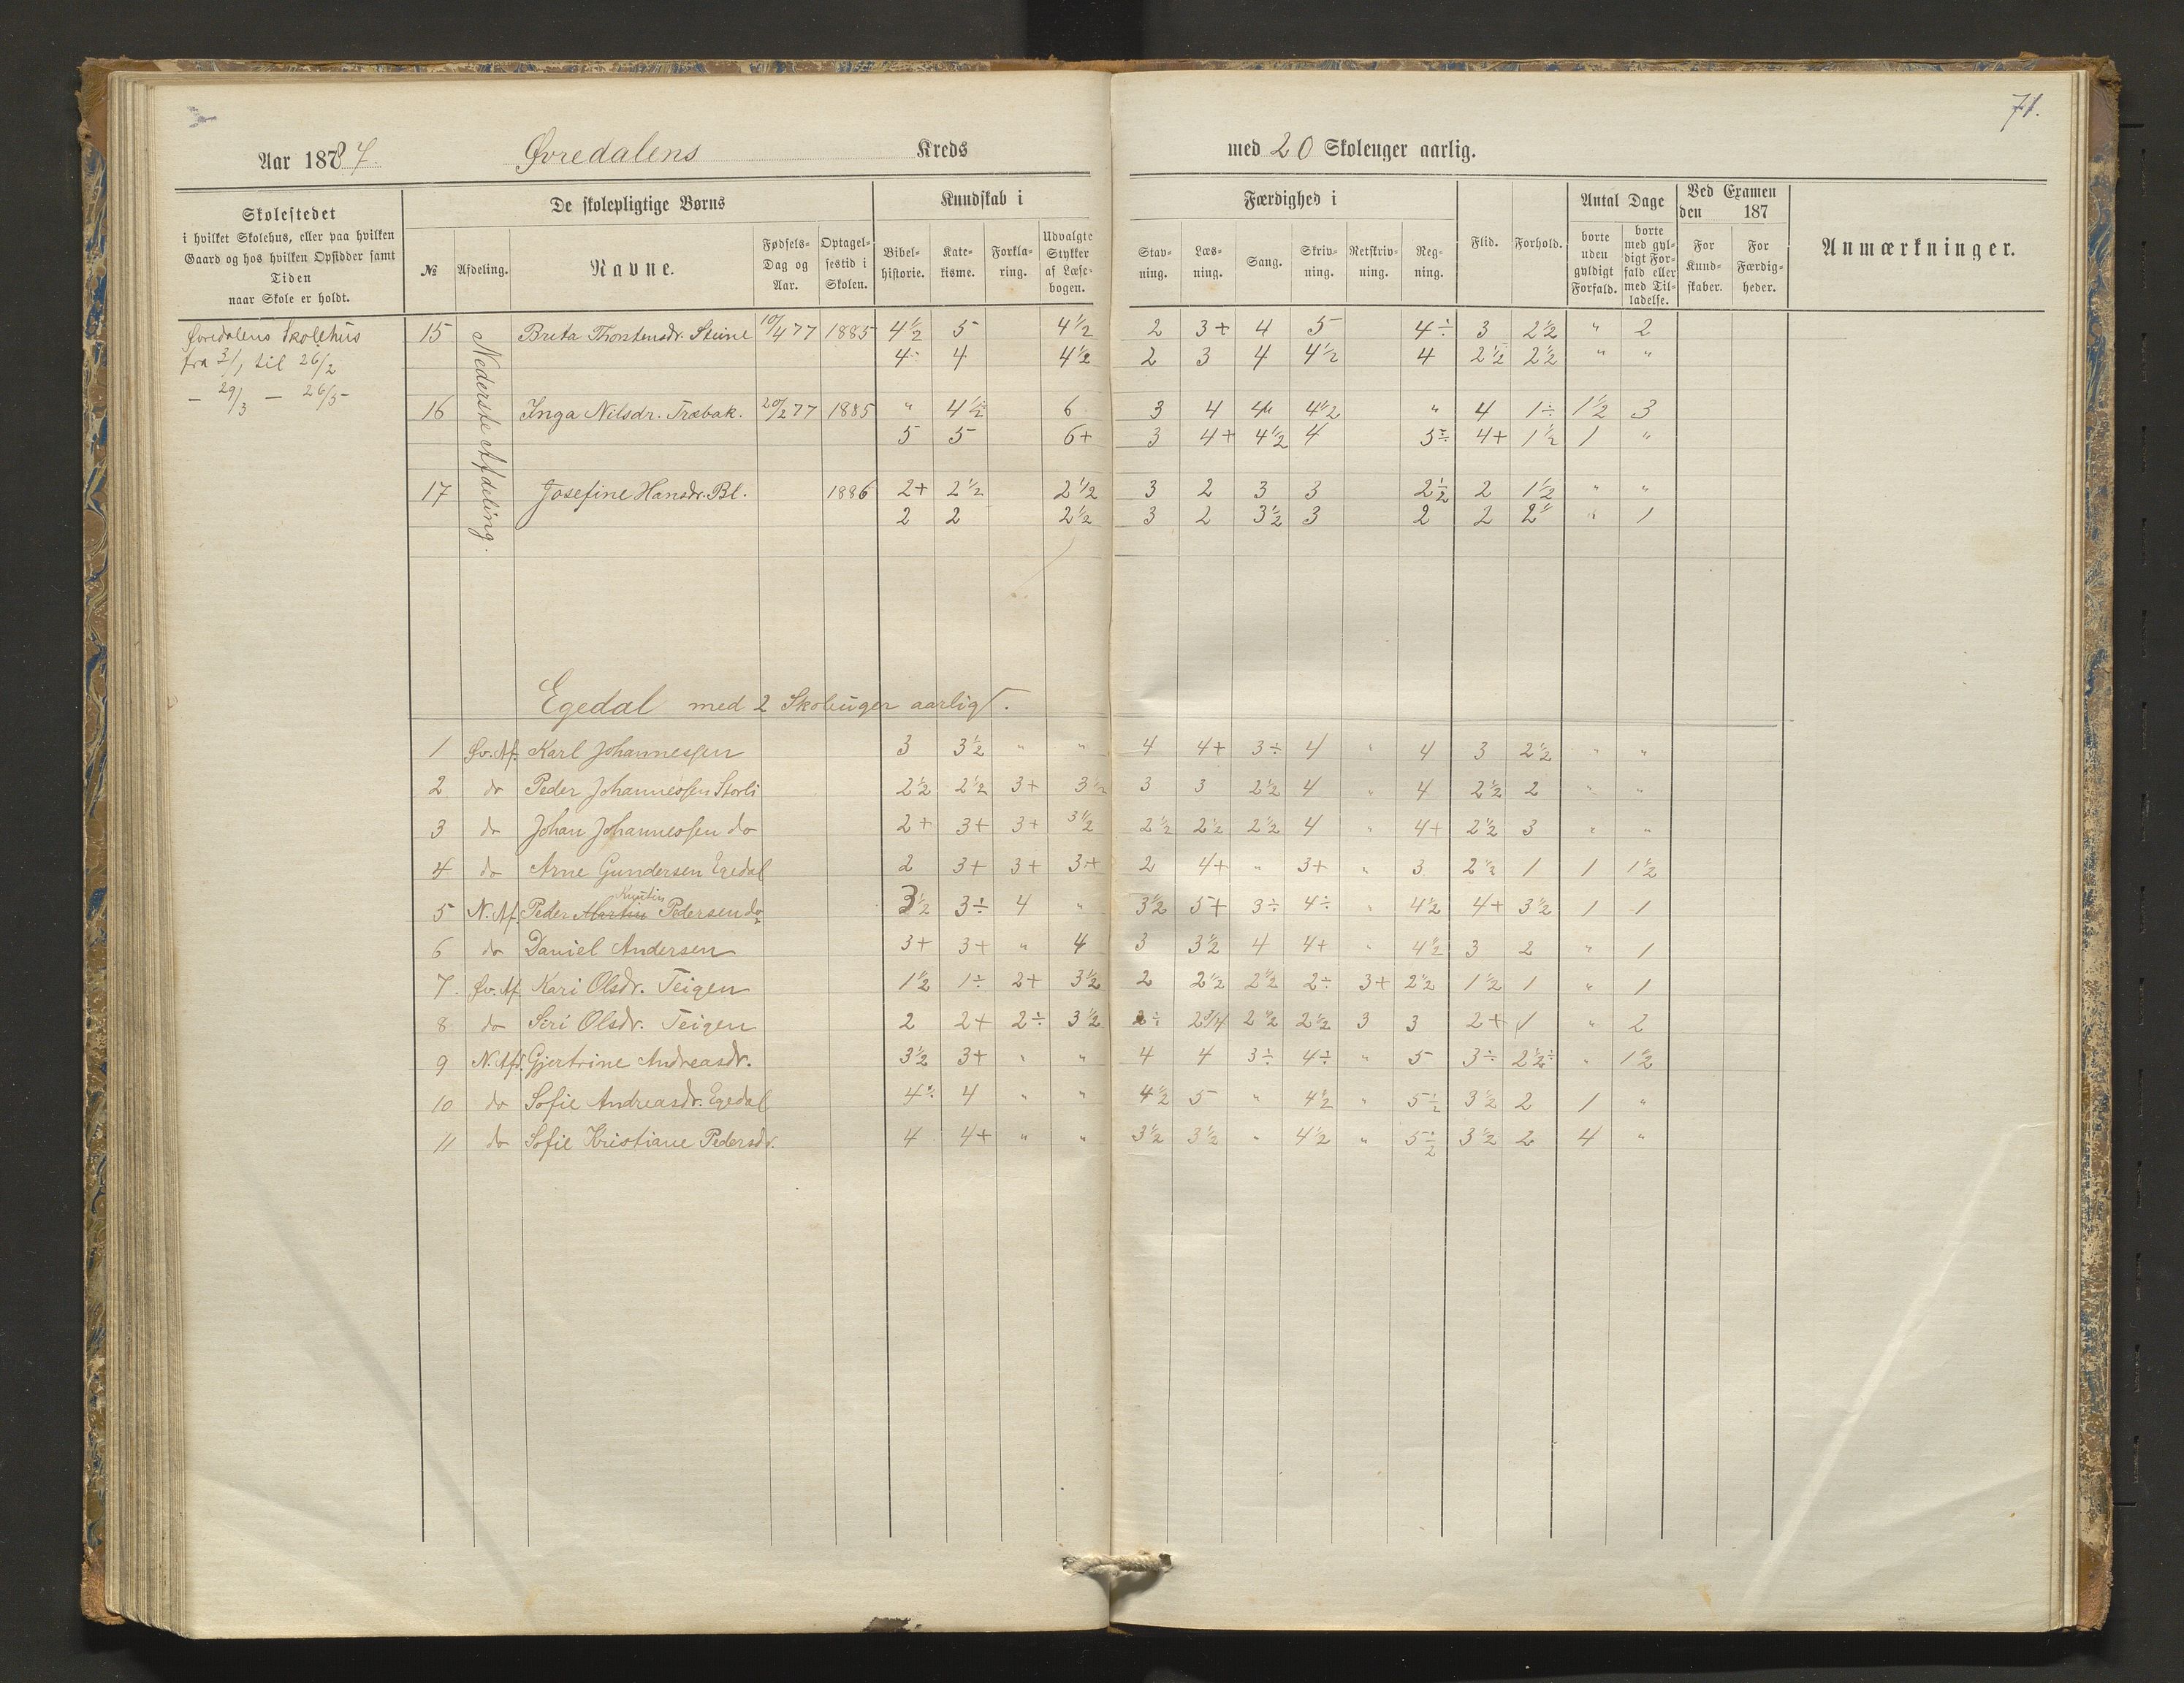 71.
Aar 1887. Øvredalens Kreds med 20 Skoleuger aarlig.
Skolestedet
i hvilket Skolehus, eller paa hvilken
Gaard og hos hvilken Opsidder samt
Tiden
naar Skole er holdt.
De skolepligtige Børns
№ Afdeling. Navne. Fødsels-Dag og Aar. Optagelsestid i Skolen.
Kundskab i
Bibelhistorie. Katekisme. Forklaring. Udvalgte Stykker af Læsebogen.
Færdighed i
Stavning. Læsning. Sang. Skrivning. Retskrivning. Regning.
Flid. Forhold.
Antal Dage
borte uden gyldigt Forfald. borte med gyldigt Forfald eller med Tilladelse.
Ved Examen
den 187
For Kundskaber. For Færdigheder.
Anmærkninger.
Øvredalens Skolehus
fra 3/1 til 26/2
– 29/3 – 26/5
Nederste Afdeling.
15 Brita Thorstensdr. Steine 10/4 77 1885 4½ 5 4½ 2 3+ 4 5 4÷ 3 2½ " 2
4÷ 4 4½ 2 3 4 4½ 4 2½ 2½ " "
16 Inga Nilsdr. Træbak. 20/2 77 1885 " 4½ 6 3 4 4 4½ " 4 1÷ 1½ 3
5 5 6+ 3 4+ 4½ 4 5÷ 4+ 1½ 1 "
17 Josefine Hansdr. Bl. 1886 2+ 2½ 2½ 3 2 3 3 2½ 2 1½ " "
2 2 2½ 3 2 3½ 3 2 2 2 " 1
Egedal med 2 Skoleuger aarligt.
1 Øv. Af. Karl Johannessen 3 3½ " " 4 4+ 3÷ 4 " 4 3 2½ " "
2 do Peder Johannessen Storli 2½ 2½ 3+ 3½ 3 3 2½ 4 " 4 2½ 2 " "
3 do Johan Johannessen do 2+ 3+ 3+ 3½ 2½ 2½ 2½ 4 " 4+ 2½ 3 " "
4 do Arne Gundersen Egedal 2 3+ 3+ 3+ 2 4+ " 3+ " 3 2½ 1 1 1½
5 N. Af. Peder Martin Pedersen do 3½ 3÷ 4 " 3½ 5+ 3÷ 4÷ " 4½ 4+ 3½ 1 1
6 do Daniel Andersen 3+ 3+ " 4 3 3½ 4 4+ " 4½ 3 2 " 1
7. Øv. Af. Kari Olsdr. Teigen 1½ 1÷ 2+ 3½ 2 2½ 2½ 2÷ 3+ 2½ 1½ 1 " 1
8 do Siri Olsdr. Teigen 2 2+ 2÷ 3½ 2÷ 2¾ 2½ 2½ 3 3 2+ 1 " 2
9 N. Afd. Gjertrine Andreasdr. 3½ 3+ " " 4 4 3÷ 4÷ " 5 3÷ 2½÷ " 1½
10 do Sofie Andreasdr. Egedal 4÷ 4 " " 4½ 5 " 4½ " 5½ 3½ 2 1 "
11 do Sofie Kristiane Pedersdr. 4 4+ " " 3½ 3½ " 4½ " 5½ 3½ 2 4 "